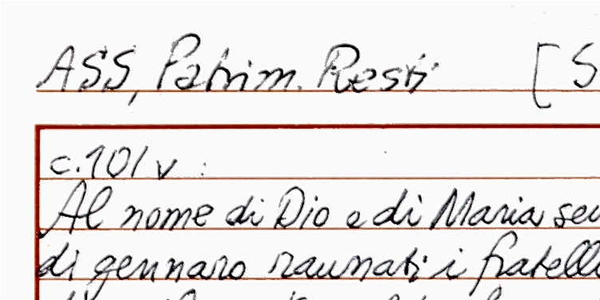 ASS, Patrim. Resti [S
c. 101 v :
Al nome di Dio e di Maria sem
di gennaro raunati i fratelli